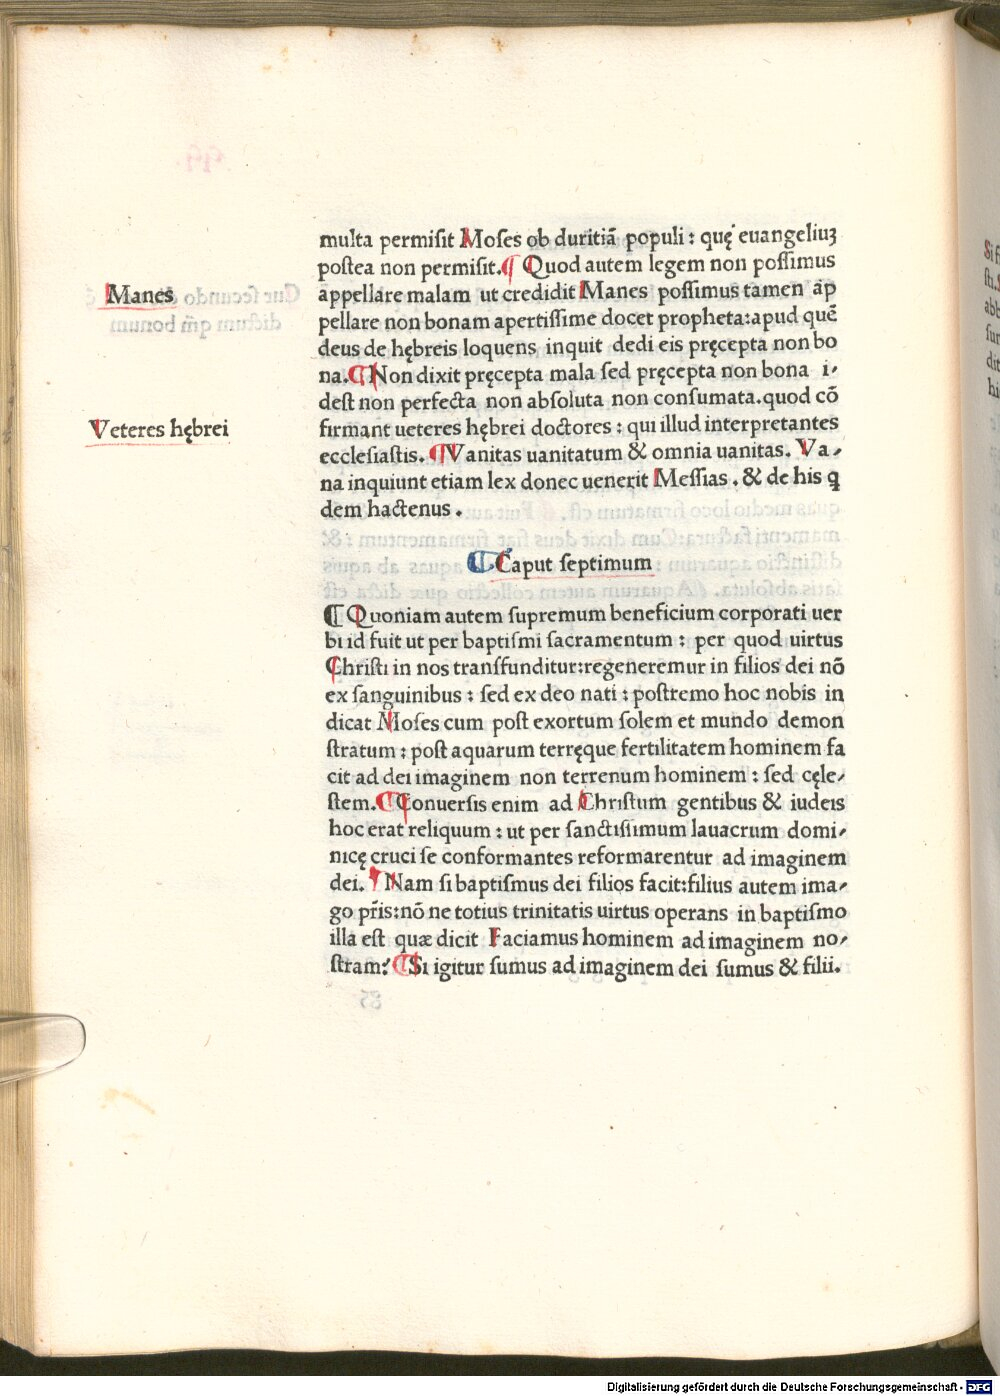 multa permiſit Moſes ob duritiā populi : quę euangeliuꝫ
poſtea non permiſit. ¶ Quod autem legem non poſſimus
Manes
appellare malam ut credidit Manes poſſimus tamen āp
pellare non bonam apertiſſime docet propheta:apud quē
deus de hębreis loquens inquit dedi eis pręcepta non bo
na. ¶ Non dixit pręcepta mala ſed pręcepta non bona i-
deſt non perfecta non abſoluta non conſumata.quod cō
Veteres hębrei
firmant ueteres hębrei doctores : qui illud interpretantes
eccleſiaſtis. ¶ Vanitas uanitatum & omnia uanitas. Va-
na inquiunt etiam lex donec uenerit Meſſias . & de his q
dem hactenus .
¶ Caput ſeptimum
¶ Quoniam autem ſupremum beneficium corporati uer
bi id fuit ut per baptiſmi ſacramentum : per quod uirtus
Chriſti in nos transfunditur:regeneremur in filios dei nō
ex ſanguinibus : ſed ex deo nati : poſtremo hoc nobis in
dicat Moſes cum poſt exortum ſolem et mundo demon
ſtratum : poſt aquarum terręque fertilitatem hominem fa
cit ad dei imaginem non terrenum hominem : ſed cęle-
ſtem. ¶ Conuerſis enim ad Chriſtum gentibus & iudeis
hoc erat reliquum : ut per ſanctiſſimum lauacrum domi-
nicę cruci ſe conformantes reformarentur ad imaginem
dei. ¶ Nam ſi baptiſmus dei filios facit:filius autem ima-
go pr̄is:nō ne totius trinitatis uirtus operans in baptiſmo
illa eſt quæ dicit Faciamus hominem ad imaginem no-
ſtram? ¶ Si igitur ſumus ad imaginem dei ſumus & filii.
Digitalisierung gefördert durch die Deutsche Forschungsgemeinschaft - DFG